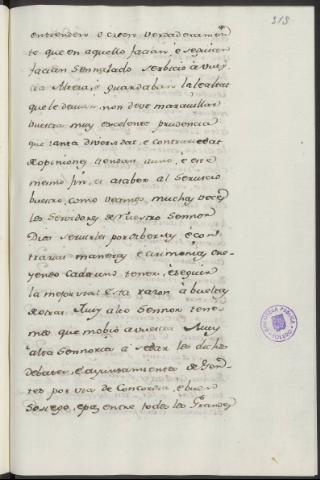 313
entienden o creen verdaderamen
te que en aquello facian ó seguien
facian señalado serbicio á vues
tra Alteza, é guardaban la lealtad
que le devian, non deve maravillar
vuestra muy excelente prudencia
que tanta diversidad, e contrariedad
de opiniones tendan á uno, e ese
mesmo fin, es asaber al servicio
vuestro, como veemos muchas veces
los servidores de Nuestro Sennor
Dios servirla por diversas é con
trarias maneras é cirimonias cre
yendo cada uno tener, é seguir
la mejor via: é esta razon á bueltas
de otras Muy alto Sennor tene
mos que mobió a vuestra Muy
alta Sennoria á sedar los dichos
debates, é ayuntamientos de Gen
tes por via de Concordia, é buen
sosiego, é paz entre todos los Grandes
BIBLIOTECA PUBLICA
TOLEDO